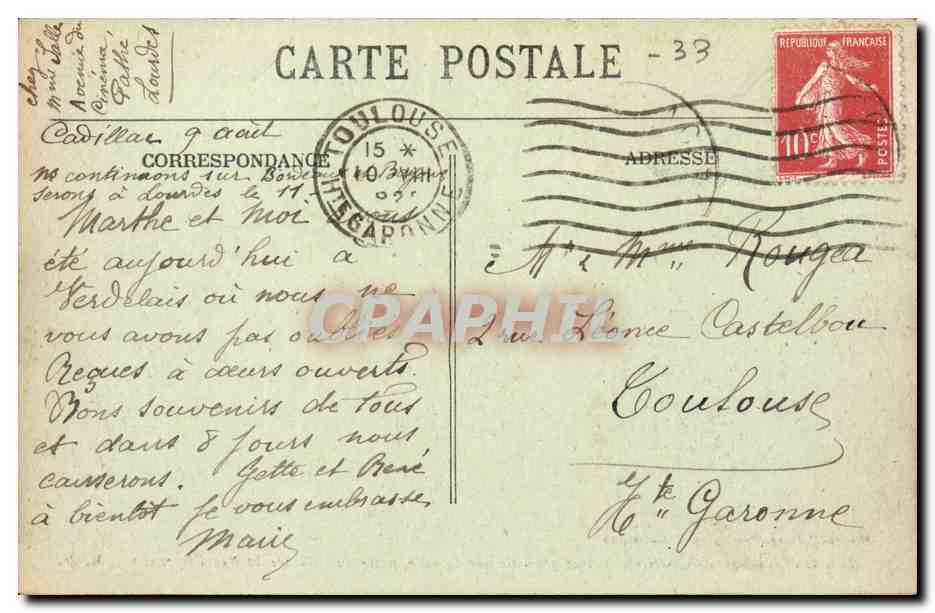 chez
Mme Salle
Avenue du
Cinéma
Pathé
Lourdes
CARTE POSTALE
-33
REPUBLIQUE FRANÇAISE
10c
POSTES
TOULOUSE
15 *
10 VIII
HTE GARONNE
Cadillac 9 août
CORRESPONDANCE
ADRESSE
ns continuons sur Bordeaux
serons à Lourdes le 11-
Marthe et moi
été aujourd'hui a
Verdelais où nous ne
vous avons pas oubliés
Reçues à cœurs ouverts.
Bons souvenirs de tous
et dans 8 jours nous
causerons. Gette et René
à bientôt Je vous embrasse
Marie
Mr & Mme Rougea
2 rue Léonce Castelbou
Toulouse
Hte Garonne
CPAPHIL